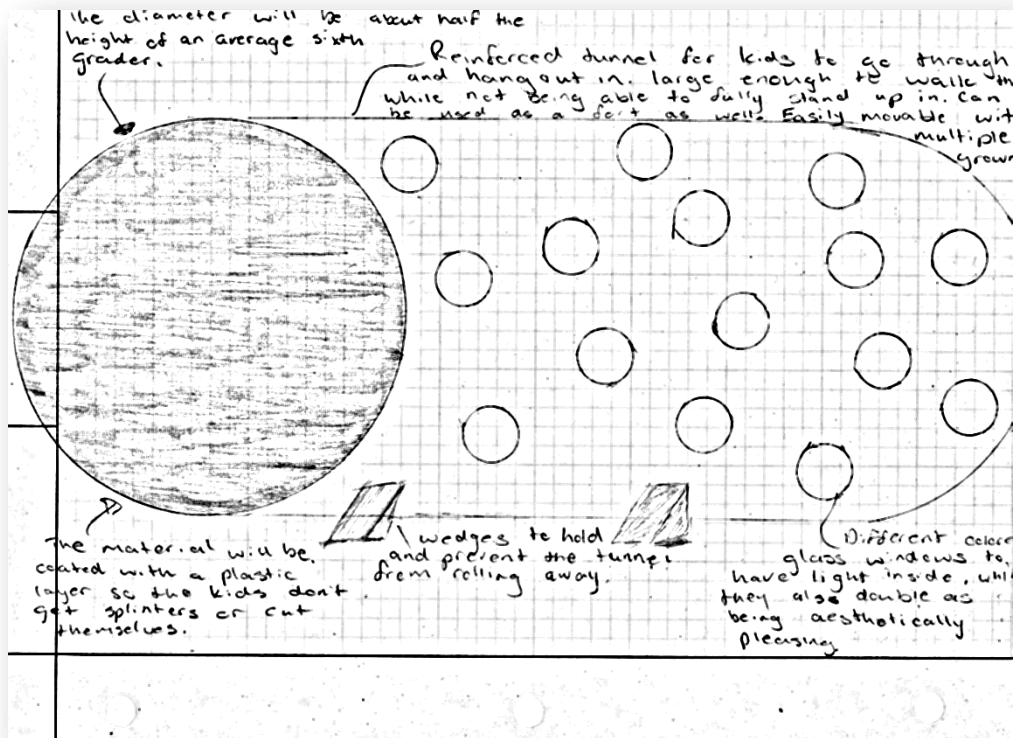 The diameter will be about half the
height of an average sixth
grader.
Reinforced tunnel for kids to go through
and hangout in. large enough to walk th
while not being able to fully stand up in. Can
be used as a fort as well. Easily movable wit
multiple
grown
The material will be
coated with a plastic
layer so the kids don't
get splinters or cut
themselves.
wedges to hold
and prevent the tunnel
from rolling away.
Different colore
glass windows to
have light inside, whi
they also double as
being aesthetically
pleasing